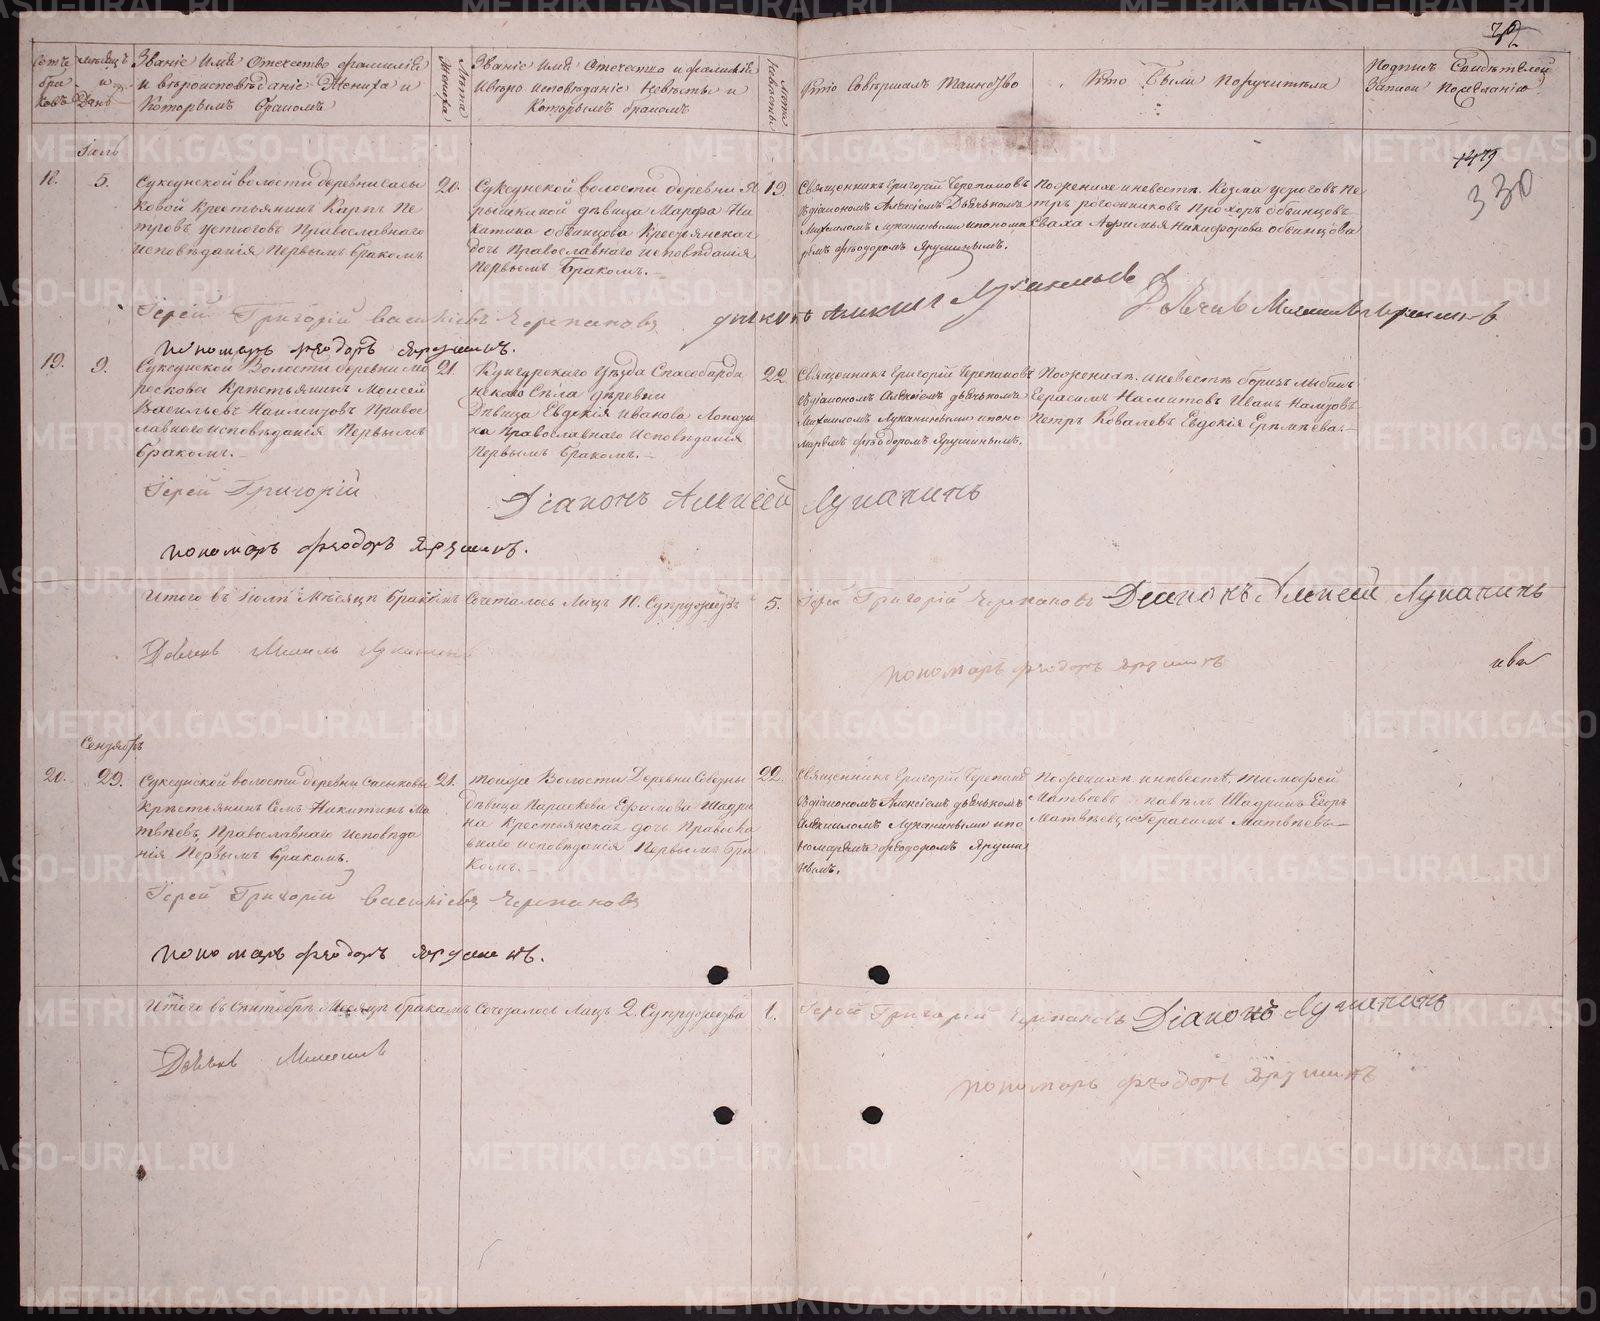 32
Счетъ браковъ
Мѣсяцъ и День
Званіе Имя Отечество фамилія
и вѣроисповѣданіе Жениха и
Которымъ бракомъ
Лѣта Жениха
Званіе Имя Отечество и фамилія
и вѣроисповѣданіе Невѣсты и
Которымъ бракомъ
Лѣта Невѣсты
Кто Совершалъ Таинство
Кто Были Поручители
Подпись Свидѣтелей
Записи по желанію
Іюль
330
18.
5.
Суксунской волости деревни Сасы
ковой Крестьянинъ Карпъ Пе
тровъ Устюговъ Православнаго
исповѣданія Первымъ бракомъ
20.
Суксунской волости деревни
дѣвица Марфа Ни
китина Обвинцова Крестьянская
дочь Православнаго исповѣданія
Первымъ бракомъ.
19
Священникъ Григорій Черепановъ
съ діакономъ Алексіемъ Дьячькомъ
Михаиломъ Луканиными и понома
ремъ Ѳеодоромъ Ярушинымъ.
По женихе и невестѣ. Козма Устюговъ Пе
тръ Рогожниковъ Прохоръ Обвинцовъ
Сваха Никифорова Обвинцова
Іерей Григорій Васильевъ Черепановъ
пономарь Ѳеодоръ Ярушинъ.
19.
9.
Суксунской Волости деревни
Крестьянинъ Моисей
Васильевъ Правос
лавнаго исповѣданія Первымъ
бракомъ.
21.
Кунгурскаго Уѣзда Спасобарди
нскаго Села деревни
Дѣвица Евдокія Иванова
на Православнаго Исповѣданія
Первымъ бракомъ.
22
Священникъ Григорій Черепановъ
съ діакономъ Алексіемъ дьячькомъ
Михаиломъ Луканиными и поно
маремъ Ѳеодоромъ Ярушинымъ.
По женихѣ и невестѣ
Герасимъ Иванъ
Петръ Ковалевъ Евдокія
Іерей Григорій
Діаконъ Алексей Луканинъ
пономарь Ѳеодоръ Ярушинъ.
Итого въ Іюлѣ Мѣсяцѣ бракомъ Сочеталось Лицъ 10. Супружествъ 5.
Іерей Григорій Черепановъ Діаконъ Алексей Луканинъ
пономарь Ѳеодоръ Ярушинъ
Сентябрь
20.
29.
Суксунской волости деревни Сасыковы
Крестьянинъ Никитинъ Ма
твѣевъ Православнаго исповѣда
нія Первымъ бракомъ.
21.
тоиже Волости Деревни
Дѣвица Параскева Шадри
на Крестьянская дочь Правосла
внаго исповѣданія Первымъ бра
комъ.
22.
Священникъ Григорій Черепановъ
съ діакономъ Алексіемъ дьячькомъ
Михаиломъ Луканиными и по
номаремъ Ѳеодоромъ Яруши
нымъ.
По женихѣ и невестѣ. Тимофей
Матвѣевъ Павелъ Шадринъ Егоръ
Матвѣевъ и Герасимъ Матвѣевъ
Іерей Григорій Васильевъ Черепановъ
пономарь Ѳеодоръ Ярушинъ.
Итого въ Сентябрѣ Месяцѣ бракомъ Сочеталось Лицъ 2. Супружества 1.
Іерей Григорій Черепановъ Діаконъ Луканинъ
пономарь Ѳеодоръ Ярушинъ
METRIKI.GASO-URAL.RU